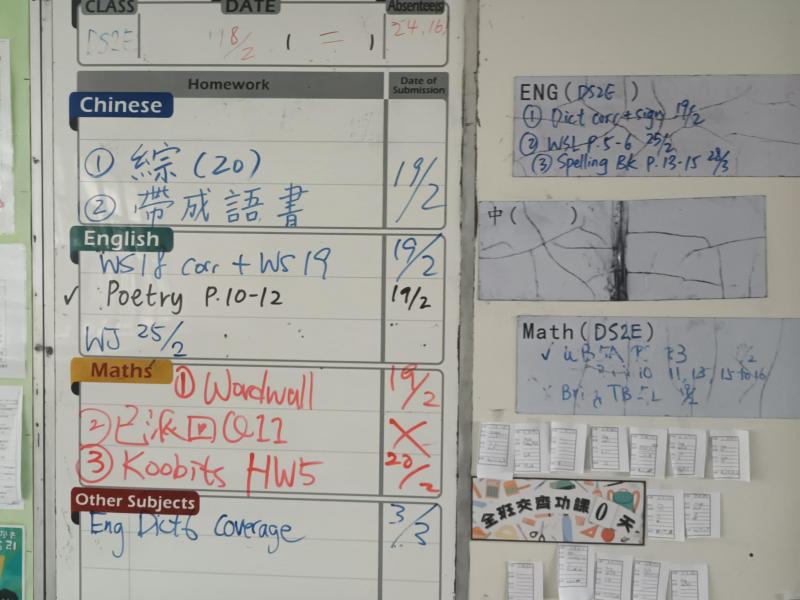 CLASS DATE Absentee(s)
DS2E 18/2 ( 二 ) 24, 16,
Homework Date of Submission
Chinese
① 綜 (20)
② 帶成語書 19/2
English
WS18 corr + WS 19 19/2
✓ Poetry P.10-12 19/2
WJ 25/2
Maths
① Wordwall 19/2
② 已派回 Q11 X
③ Koobits HW5 20/2
Other Subjects
Eng Dict6 Coverage 3/3
ENG (DS2E )
① Dict corr + sign 19/2
② WSL P.5-6 25/2
③ Spelling Bk P.13-15 28/3
中 ( )
Math (DS2E)
✓
11, 13, 15
TB
全班交齊功課 0 天